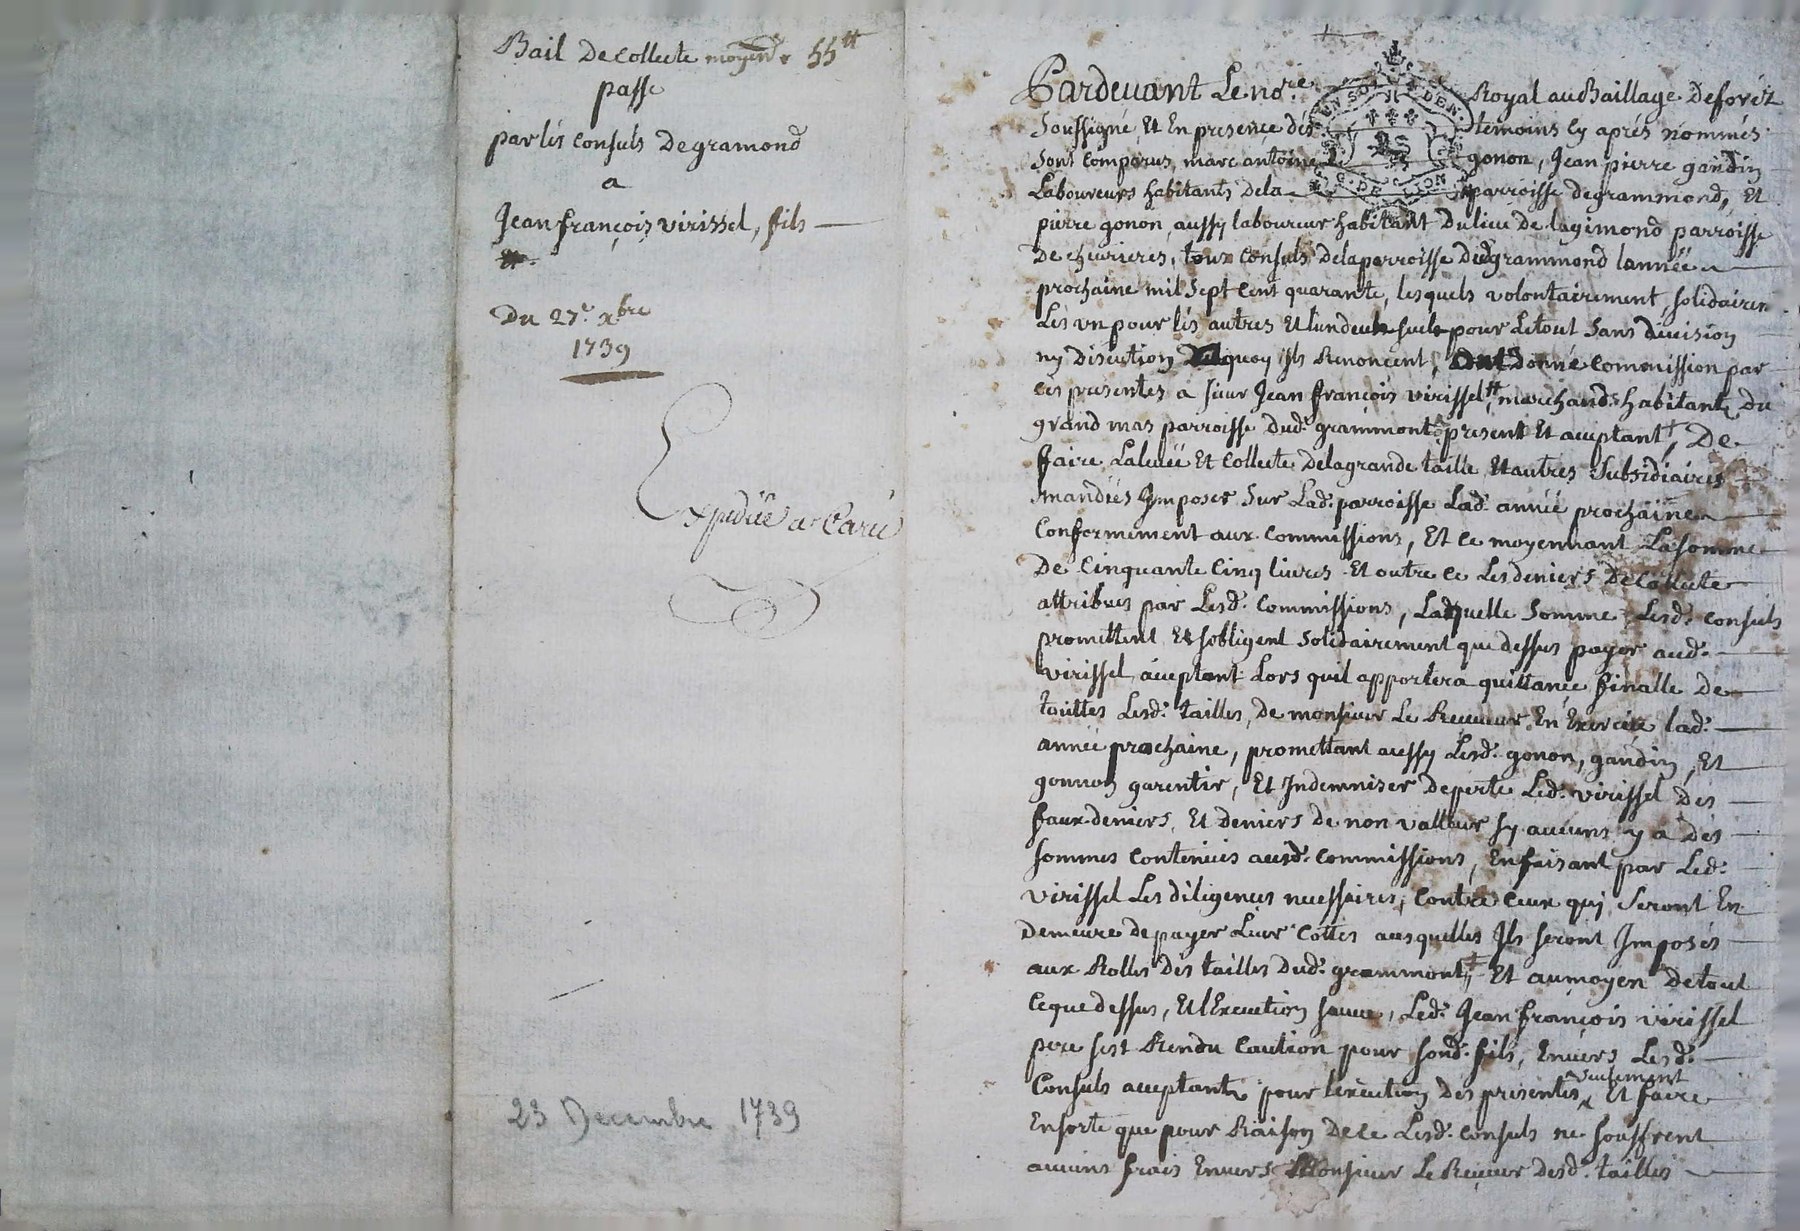 Bail De collecte moyen.t 55tt
passé
par lés consuls De gramond
a
Jean françois virissel, fils
Du 27.e xbre
1739
Expediée a Parié
23 Decembre 1739
Pardevant Le no.re Royal au Baillage De foréz
Soussigné, Et En presence dés temoins cy aprés nommés
Sont comparus, marc antoine gonon, Jean pierre gandin
Laboureurs habitants dela parroisse de grammond, Et
pierre gonon, aussy laboureur habitant Du lieu de lagimond parroisse
De chevrieres, tous consuls dela parroisse de grammond lannée
prochaine mil sept cent quarante, lesquels volontairement, solidairem
Les un pour lés autres Et lun deux seul pour Le tout sans division
ny Discution quoy ils Renoncent, ont Donné commission par
ces presentes a sieur Jean françois virissel tt, marchand habitant du
grand mas parroisse dud. grammont present Et aceptant, De
faire La levée Et collecte De la grande taille, Et autres Subsidiaires
mandées Imposer Sur Lad. parroisse Lad. année prochaine
Conformement aux commissions, Et ce moyennant La somme
De Cinquante Cinq livres Et outre ce Les deniers De collecte
attribués par Lesd. commissions, Laquelle somme Lesd. consuls
promettent Et sobligent solidairement que dessus payer aud.
virissel aceptant Lors quil apportera quittance finalle De
touttes Lesd. tailles, de monsieur Le Receveur En Exercice lad.
année prochaine, promettant aussy Lesd. gonon, gandin, Et
gonnon garentir, Et Indemniser de perte Led. virissel Dés
faux deniers, Et deniers de non valleur sy aucuns y a Dés
sommes contenües ausd. commissions, En faisant par Led.
virissel Les diligences necessaires, contre ceux qui seront En
Demeure de payer Leur cottes ausquelles Ils seront Imposés
aux Rolles dés tailles Dud. grammont, Et au moyen de tout
ce que dessus, Et l'Execution sauve, Led. Jean françois virissel
pere sest Rendu caution pour sond. fils, Envers Lesd.
Consuls aceptants pour lexecution Des presentes seulement Et faire
Ensorte que pour Raison De ce Lesd. consuls ne souffrent
aucuns frais Envers Monsieur Le Receveur Desd. tailles